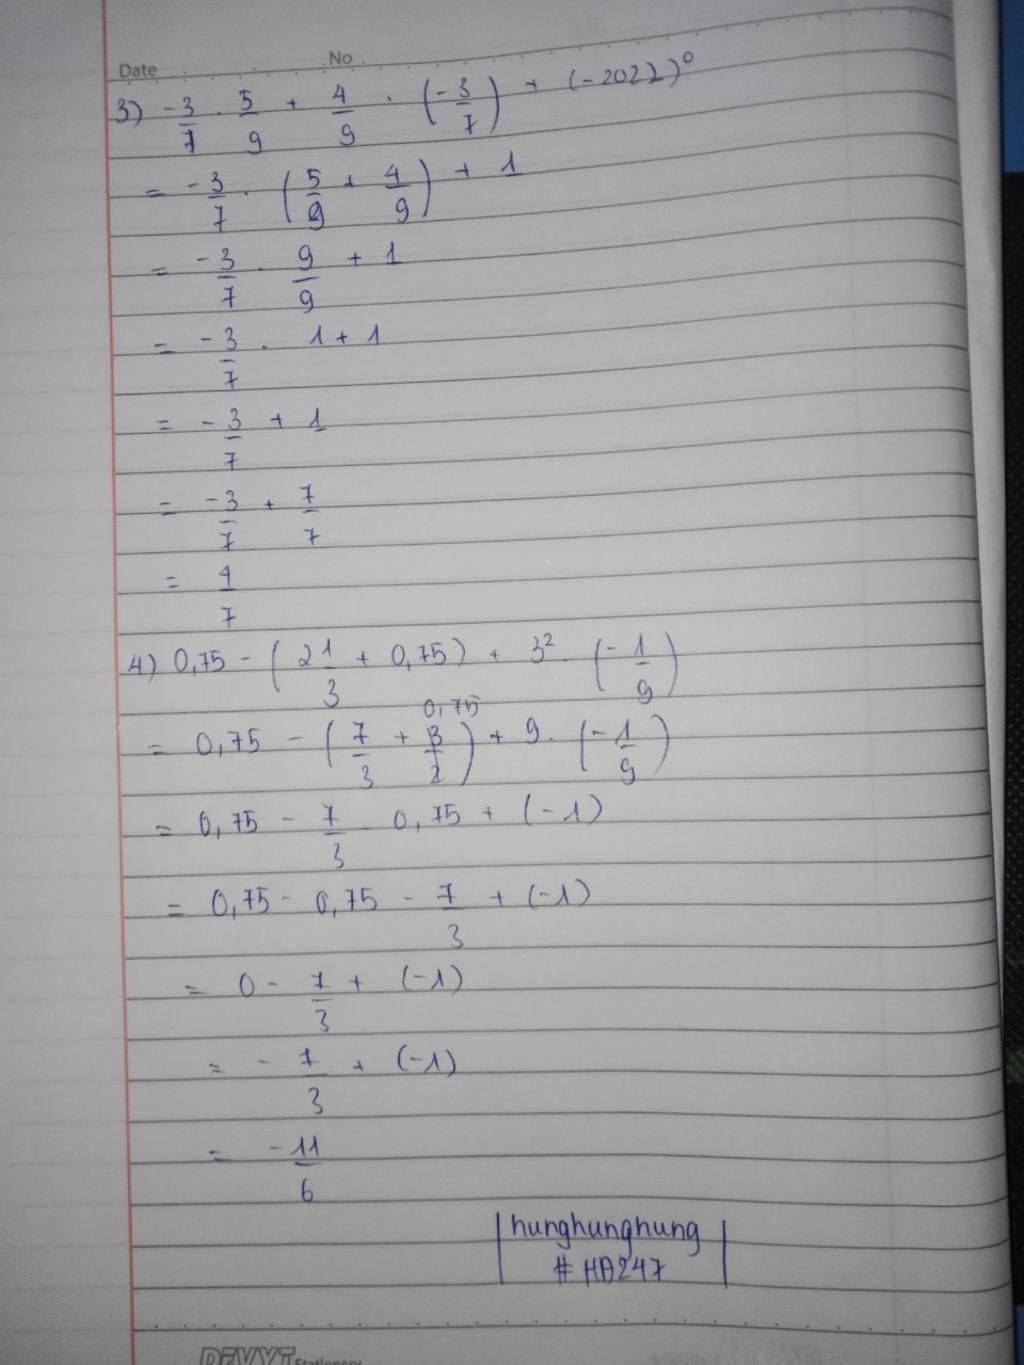 Date No
3) -3/7 . 5/9 + 4/9 . (-3/7) + (-2022)⁰
= -3/7 . (5/9 + 4/9) + 1
= -3/7 . 9/9 + 1
= -3/7 . 1 + 1
= -3/7 + 1
= -3/7 + 7/7
= 4/7
4) 0,75 - (2 1/3 + 0,75) + 3² . (-1/9)
0,75
= 0,75 - (7/3 + 3/2) + 9 . (-1/9)
= 0,75 - 7/3 - 0,75 + (-1)
= 0,75 - 0,75 - 7/3 + (-1)
= 0 - 7/3 + (-1)
= - 7/3 + (-1)
= -11/6
hunghunghung
# HA247
DEVYT Stationery